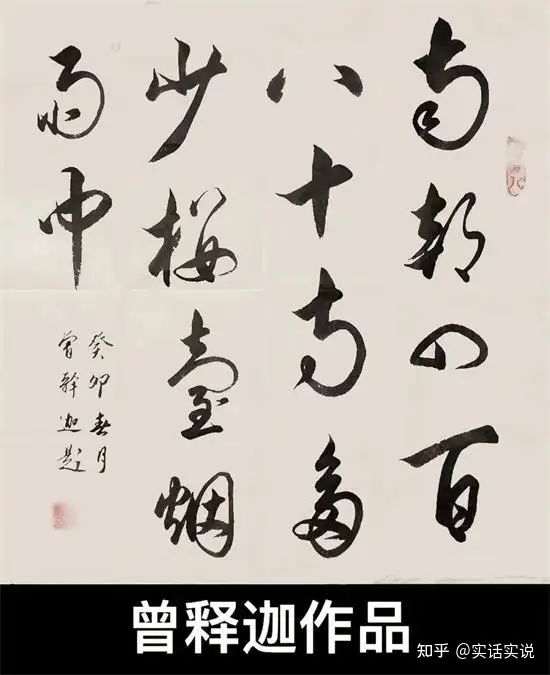 南朝四百
八十寺多
少樓臺烟
雨中
癸卯春月
曾釋迦题
曾释迦作品
知乎 @实话实说